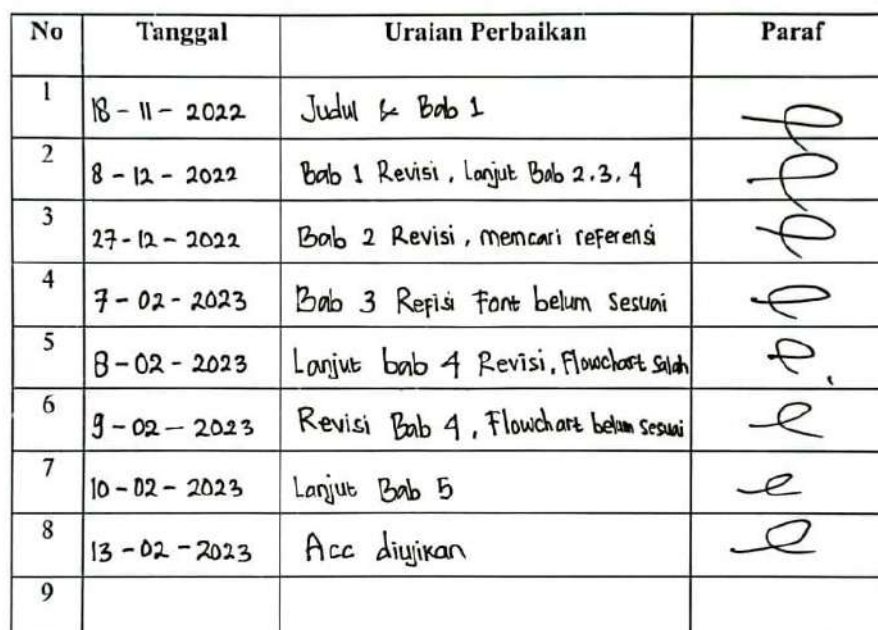 No Tanggal Uraian Perbaikan Paraf
1 18-11-2022 Judul & Bab 1
2 8-12-2022 Bab 1 Revisi, Lanjut Bab 2.3.4
3 27-12-2022 Bab 2 Revisi, memcari referensi
4 7-02-2023 Bab 3 Refisi Font belum Sesuai
5 8-02-2023 Lanjut bab 4 Revisi, Flowchart Salah
6 9-02-2023 Revisi Bab 4, Flowchart belum sesuai
7 10-02-2023 Lanjut Bab 5
8 13-02-2023 Acc diujikan
9